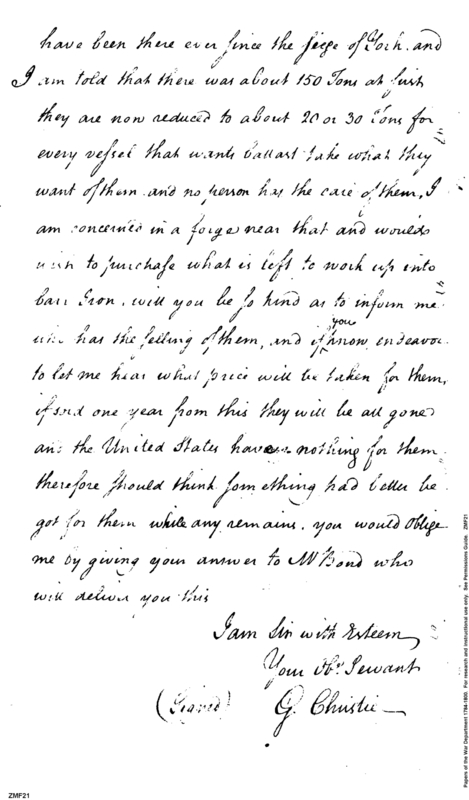 have been there ever since the seige of York. and
I am told that there was about 150 Tons at first
they are now reduced to about 20 or 30 Tons for
every vessel that wants ballast take what they
want of them and no person has the care of them, I
am concerned in a forge near that and would
wish to purchase what is left to work up into
barr Iron. will you be so kind as to inform me
who has the selling of them, and if you know, endeavor
to let me hear what price will be taken for them,
if not one year from this they will be all gone
and the United States have nothing for them
therefore should think something had better be
got for them while any remains. you would oblige
me by giving your answer to Mr Bond who
will deliver you this
I am Sir with Esteem
Your Obt Servant
(Signed) G. Christie
Papers of the War Department 1784-1800. For research and instructional use only. See Permissions Guide. ZMF21
ZMF21